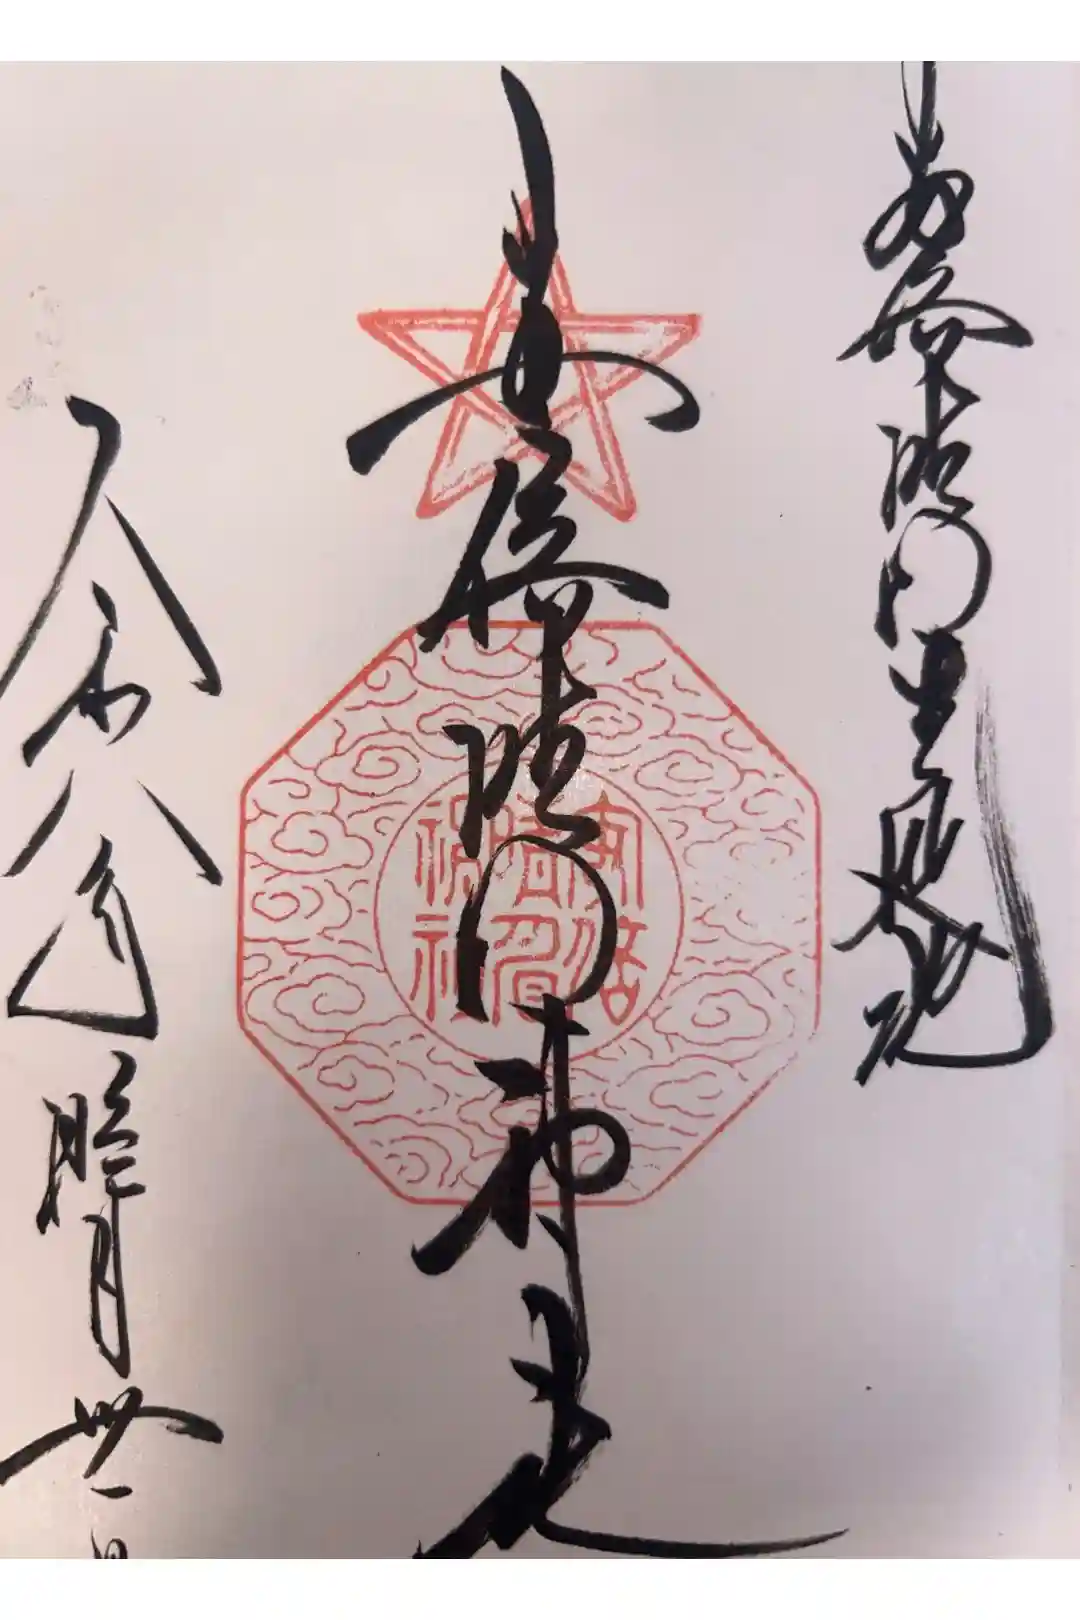 安倍晴明生誕地
安倍晴明神社
安倍
晴明
神社
令和八年睦月丗一日